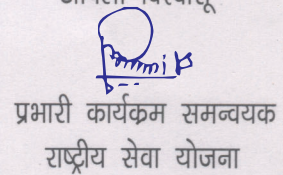 प्रभारी कार्यक्रम समन्वयक
राष्ट्रीय सेवा योजना